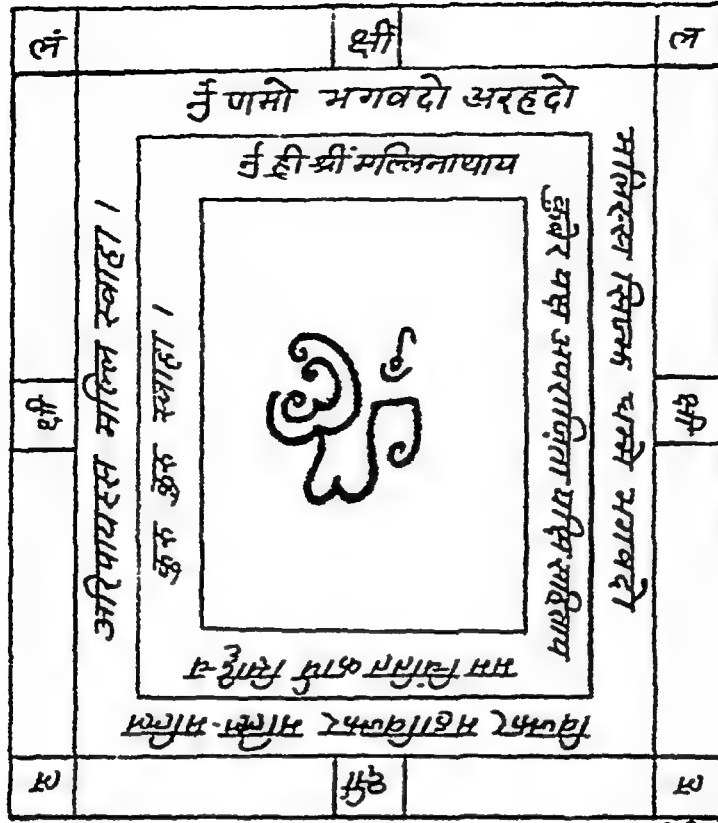 लं क्षीं ल
ॐ णमो भगवदो अरहदो
मलिस्स सिज्झ धम्मे भगवदो
विज्झर महाविज्झर मल्लि-मल्लि
अरिपायस्स मल्लि स्वाहा ।
ॐ ह्री श्रीं मल्लिनाथाय
कुबेर यक्ष अपराजिता यक्षि सहिताय
मम चिंतित कार्य सिद्धिं च
कुरु कुरु स्वाहा ।
ॐ
क्षी क्षी
ल क्षीं ल